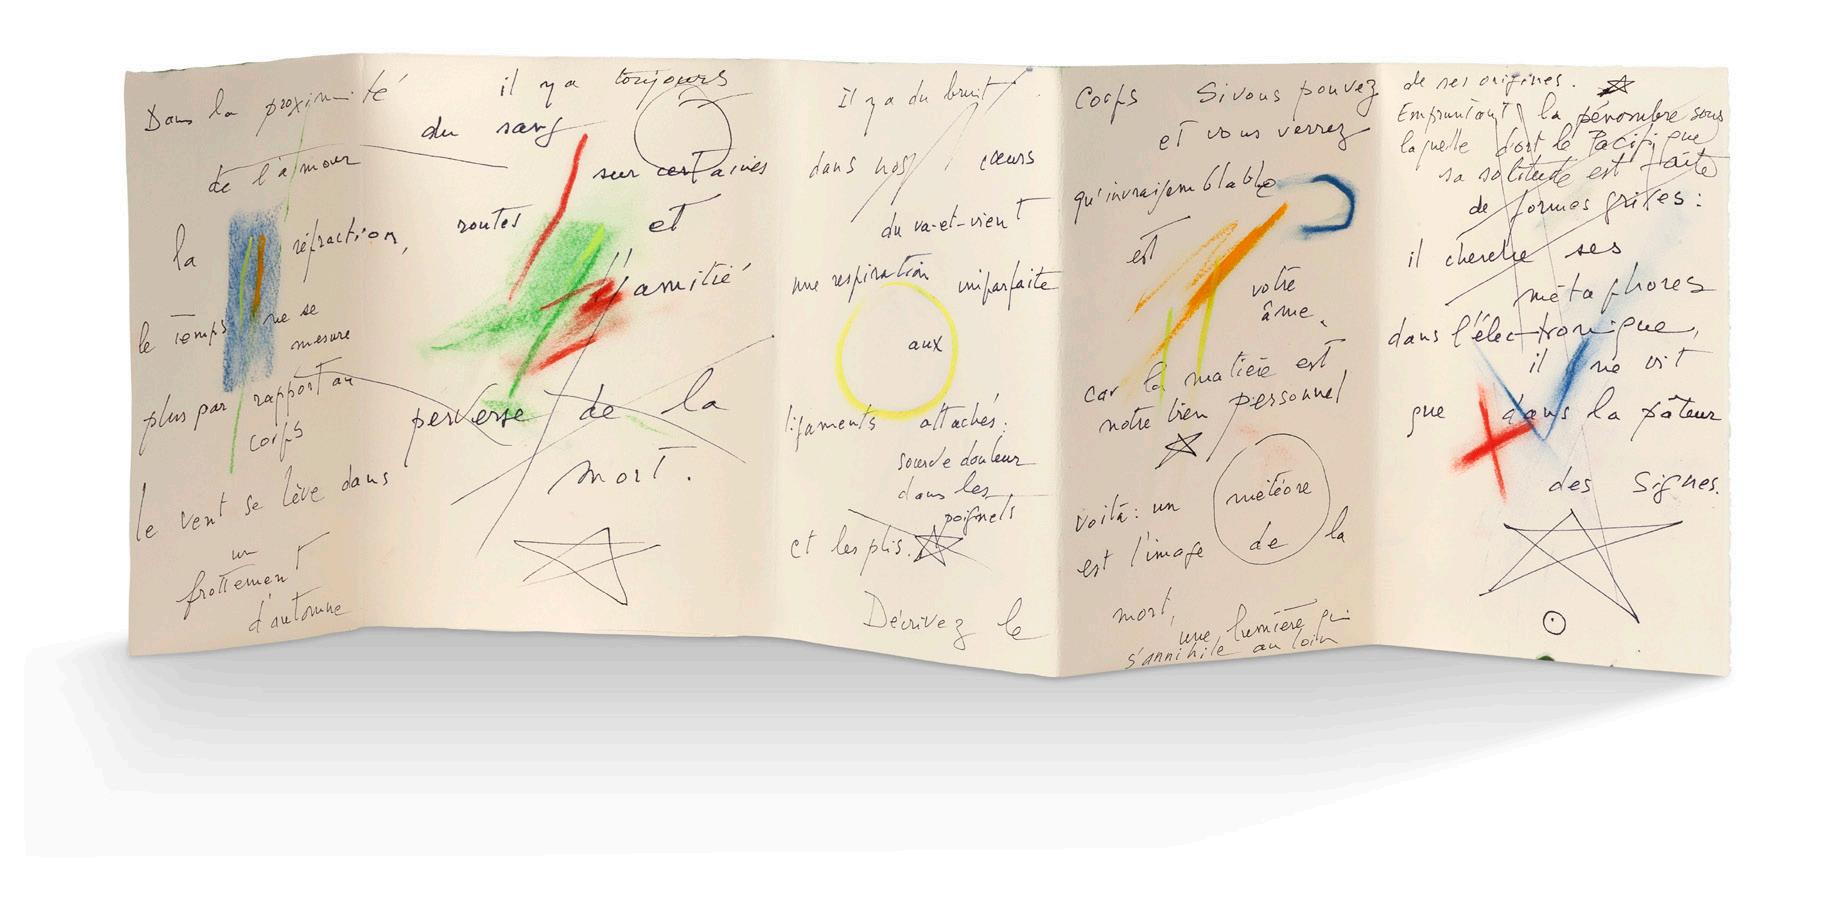 Dans la proximité
de l'amour
la réfraction,
le temps ne se
mesure
plus par rapport au
corps
le vent se lève dans
un
frottement
d'automne
il y a toujours
du sang
sur certaines
routes et
l'amitié
perverse de la
mort.
Il y a du bruit
dans nos cœurs
du va-et-vient
une respiration imparfaite
aux
ligaments attachés:
sourde douleur
dans les
poignets
et les plis.
Décrivez le
corps Si vous pouvez
et vous verrez
qu'invraisemblable
est
votre
âme,
car la matière est
notre lien personnel
voilà: un météore
est l'image de la
mort,
une lumière qui
s'annihile au loin
de ses origines.
Empruntant la pénombre sous
laquelle dort le Pacifique
sa solitude est faite
de formes grises:
il cherche ses
métaphores
dans l'électronique,
il ne vit
que dans la pâleur
des Signes.